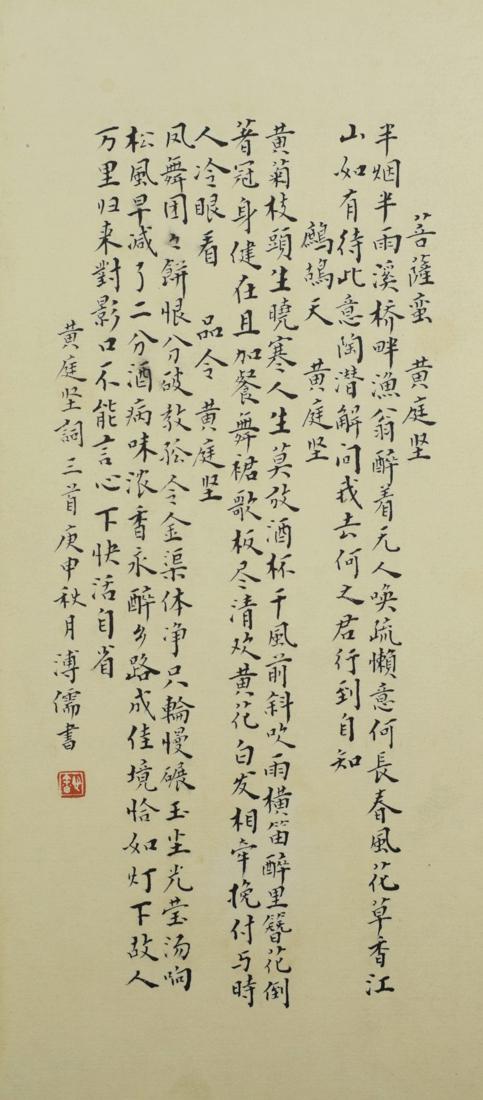 菩薩蛮　黄庭坚
半烟半雨溪桥畔漁翁醉着无人唤疏懒意何長春風花草香江
山如有待此意陶潜解问我去何之君行到自知
鹧鸪天　黄庭坚
黄菊枝頭生曉寒人生莫放酒杯干風前斜吹雨横笛醉里簪花倒
著冠身健在且加餐舞裙歌板尽清欢黄花白发相牵挽付与時
人冷眼看　品令　黄庭坚
凤舞团々餅恨分破教孤令金渠体净只輪慢碾玉尘光莹汤响
松風早减了二分酒病味浓香永醉乡路成佳境恰如灯下故人
万里归来對影口不能言心下快活自省
黄庭坚詞三首庚申秋月溥儒書